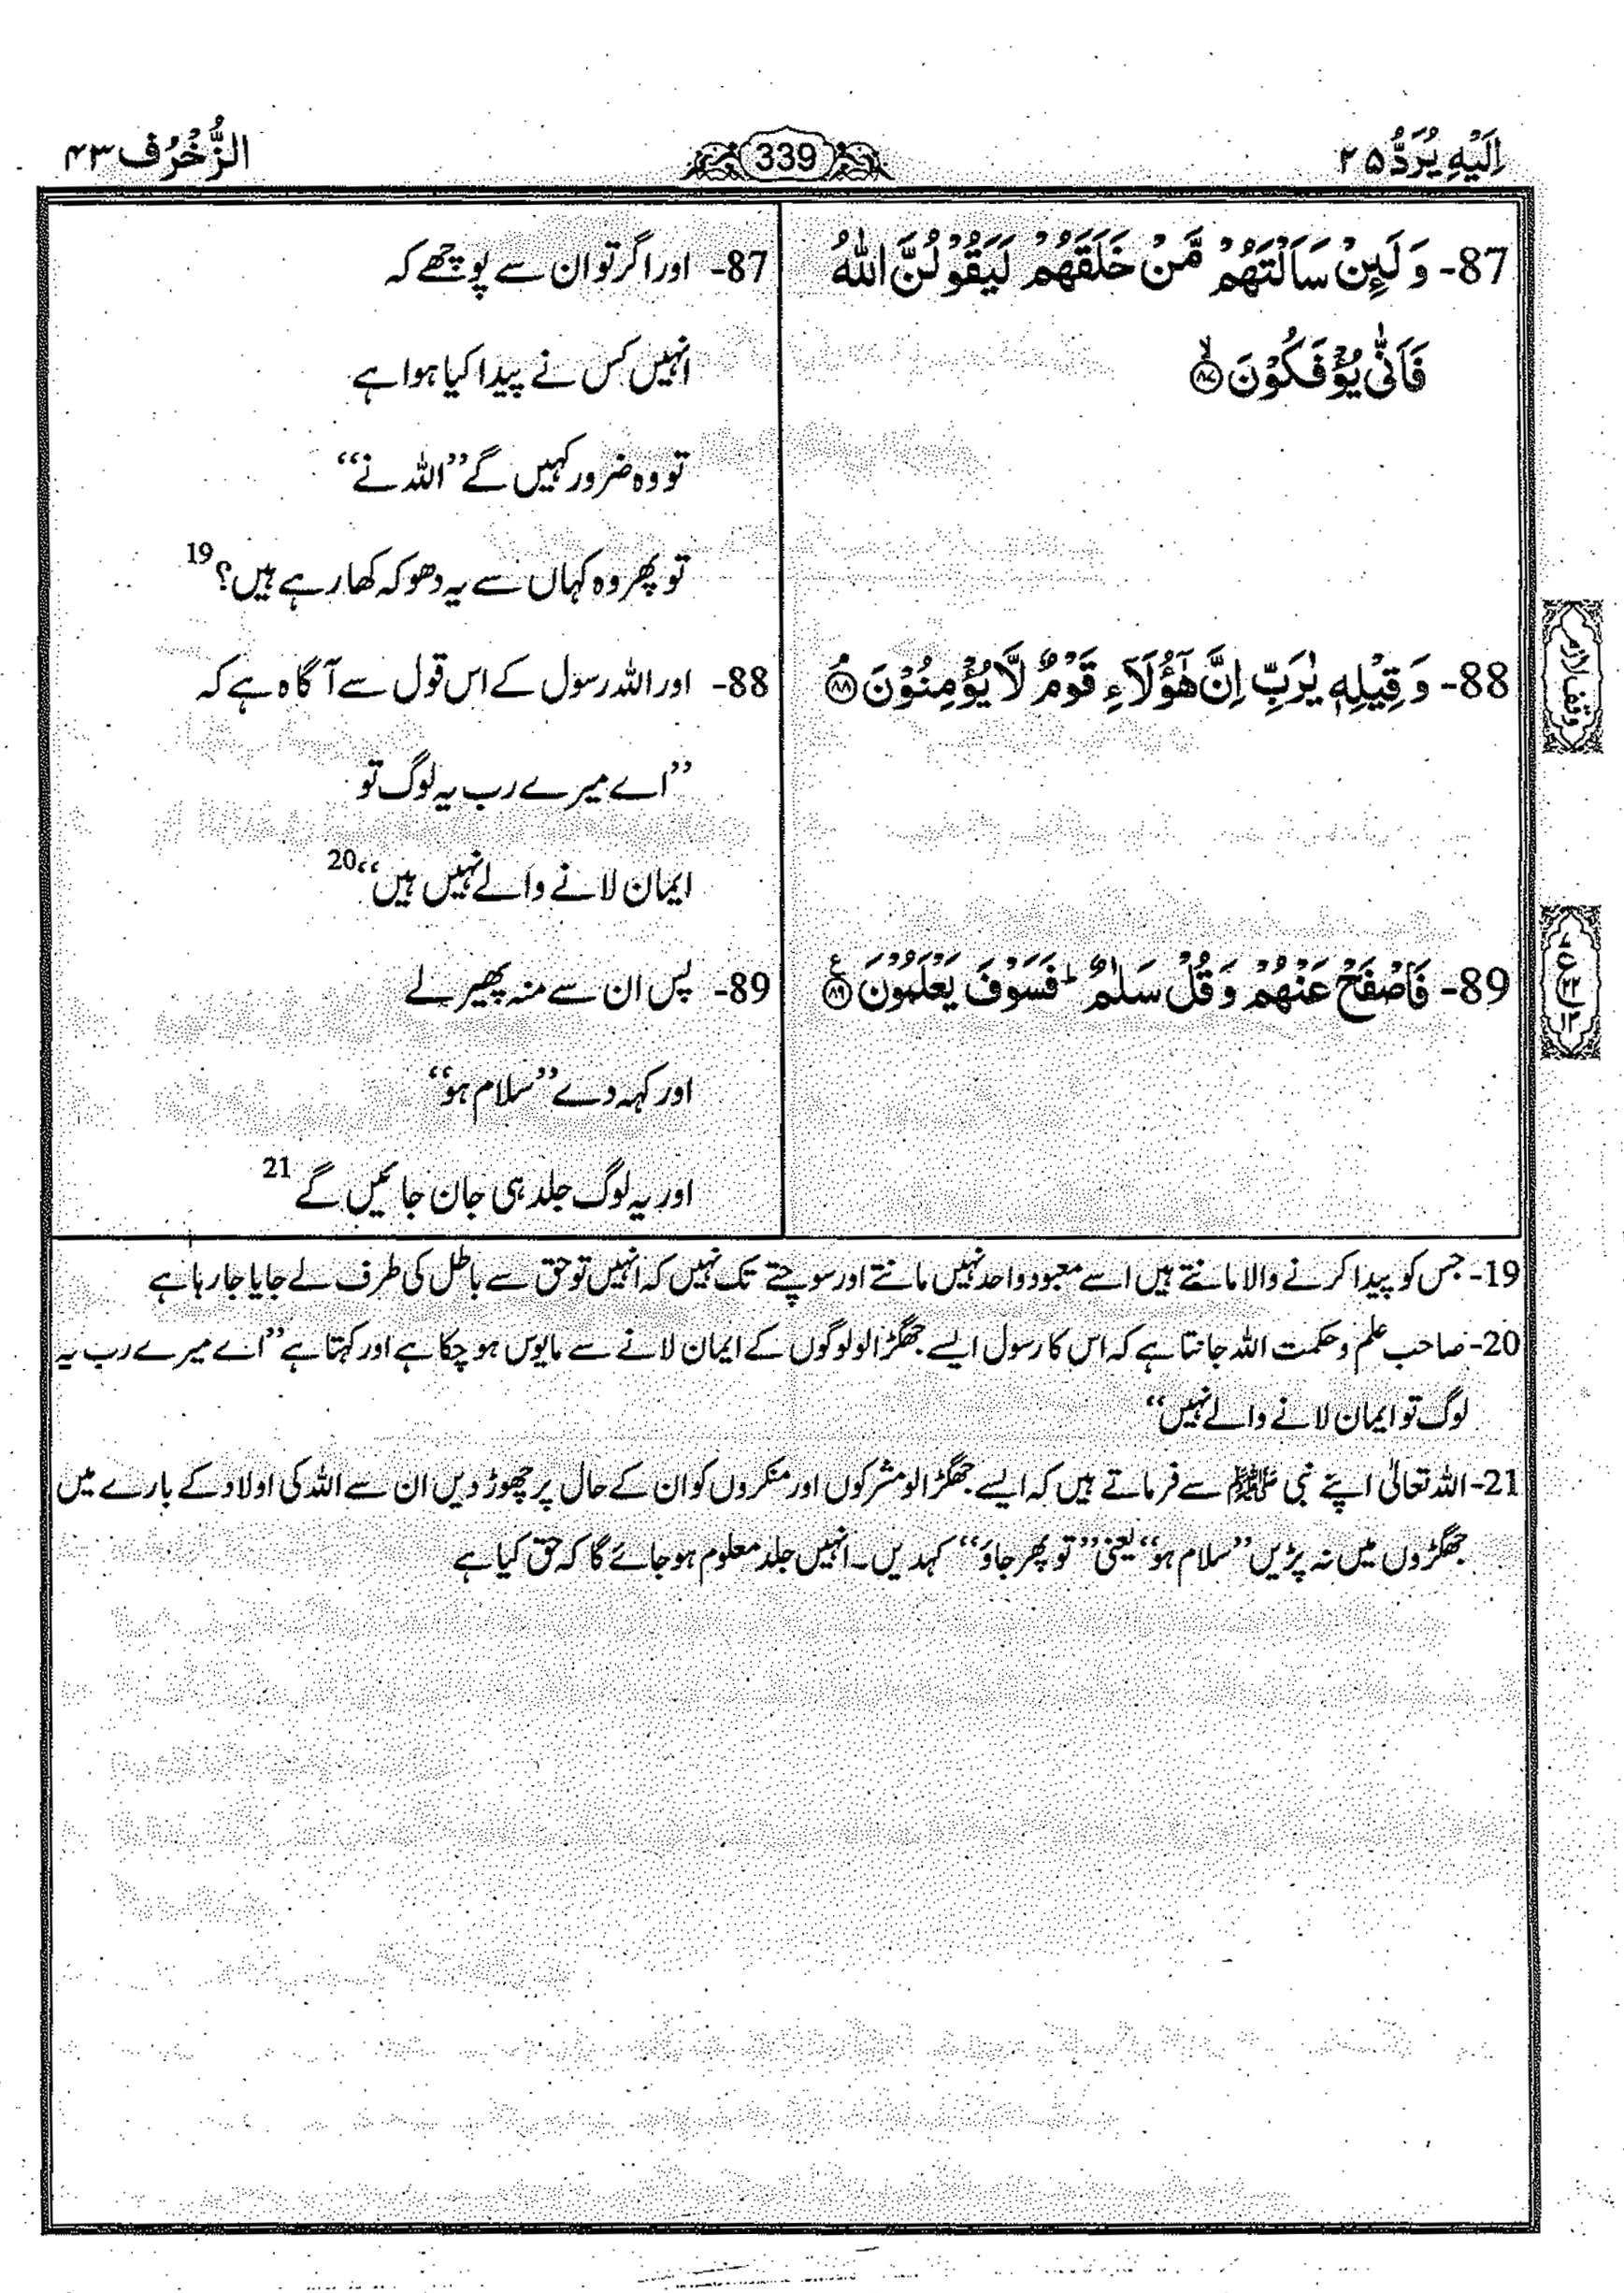 اِلَیْہِ یُرَدُّ ۲۵
339
الزُّخْرُف ۴۳
87- وَ لَىِٕنْ سَاَلْتَهُمْ مَّنْ خَلَقَهُمْ لَیَقُوْلُنَّ اللّٰهُ
فَاَنّٰی یُؤْفَكُوْنَۙ۝۸۷
87- اور اگر تو ان سے پوچھے کہ
انہیں کس نے پیدا کیا ہوا ہے
تو وہ ضرور کہیں گے ’’اللہ نے‘‘
تو پھر وہ کہاں سے یہ دھوکہ کھا رہے ہیں؟ 19
88- وَ قِیْلِهٖ یٰرَبِّ اِنَّ هٰۤؤُلَآءِ قَوْمٌ لَّا یُؤْمِنُوْنَۘ۝۸۸
وقف لازم
88- اور اللہ رسول کے اس قول سے آگاہ ہے کہ
’’اے میرے رب یہ لوگ تو
ایمان لانے والے نہیں ہیں‘‘ 20
89- فَاصْفَحْ عَنْهُمْ وَ قُلْ سَلٰمٌ ؕ فَسَوْفَ یَعْلَمُوْنَ۠۝۸۹
89- پس ان سے منہ پھیر لے
اور کہہ دے ’’سلام ہو‘‘
اور یہ لوگ جلد ہی جان جائیں گے 21
19- جس کو پیدا کرنے والا مانتے ہیں اسے معبود واحد نہیں مانتے اور سوچتے تک نہیں کہ انہیں تو حق سے باطل کی طرف لے جایا جا رہا ہے
20- صاحب علم و حکمت اللہ جانتا ہے کہ اس کا رسول ایسے جھگڑالو لوگوں کے ایمان لانے سے مایوس ہو چکا ہے اور کہتا ہے ’’اے میرے رب یہ
لوگ تو ایمان لانے والے نہیں‘‘
21- اللہ تعالٰی اپنے نبی ﷺ سے فرماتے ہیں کہ ایسے جھگڑالو مشرکوں اور منکروں کو ان کے حال پر چھوڑ دیں ان سے اللہ کی اولاد کے بارے میں
جھگڑوں میں نہ پڑیں ’’سلام ہو‘‘ یعنی ’’تو پھر جاؤ‘‘ کہدیں۔ انہیں جلد معلوم ہو جائے گا کہ حق کیا ہے